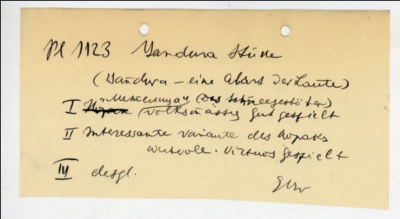 Pl 1123 Bandura Stücke
(Bandura – eine Abart der Laute)
I "Metelitza" (Das Schneegestöber) volksmässig gut gespielt
II Interessante Variante des Hopaks
wertvolle. Virtuos gespielt
III desgl.